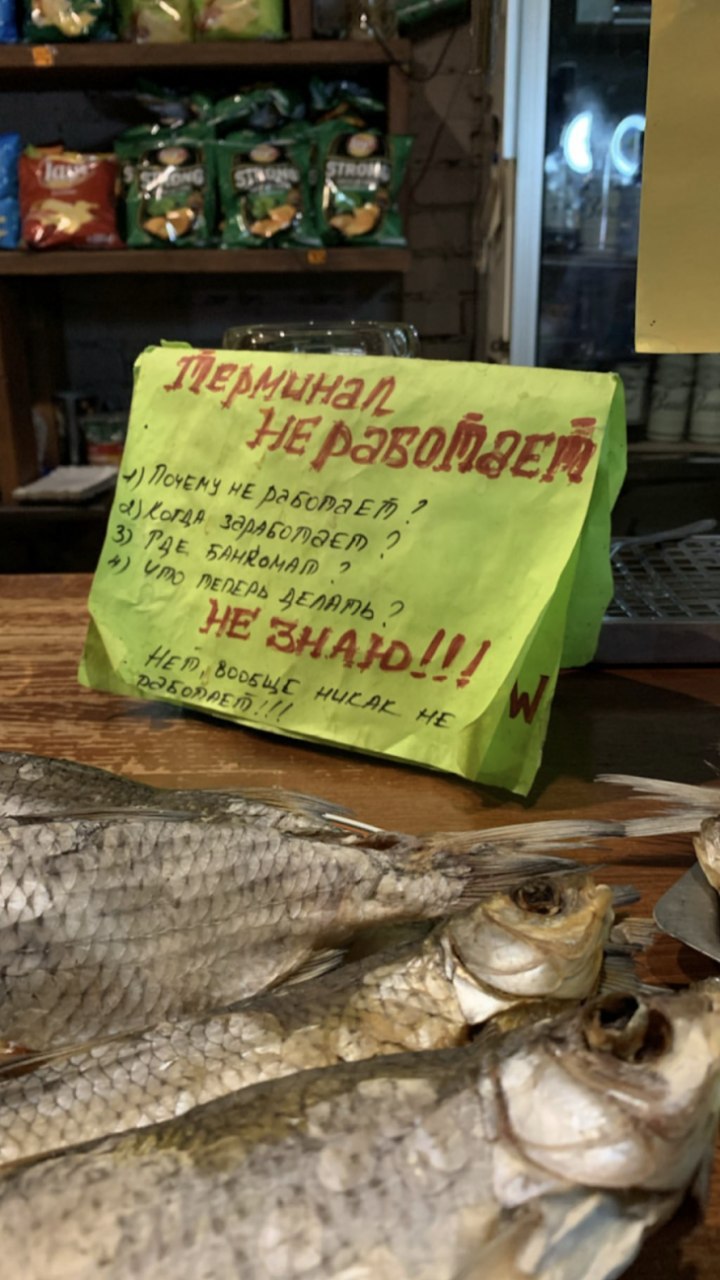 Lay's
STRONG
STRONG
STRONG
Терминал
НЕ работает
1) Почему не работает?
2) Когда заработает?
3) Где банкомат?
4) Что теперь делать?
НЕ ЗНАЮ!!!
Нет, вообще никак не
работает!!!
W